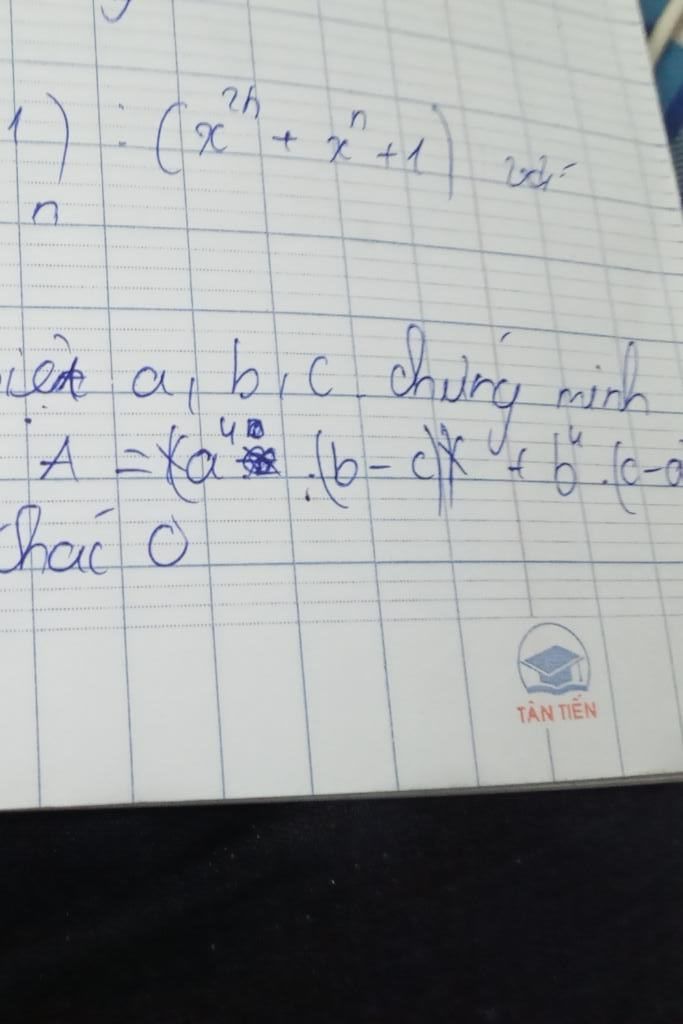 1) : (x²ⁿ + xⁿ + 1) với
n
biết a, b, c chứng minh
A = (a⁴ . (b - c) + b⁴ . (c - a
khác 0
TÂN TIẾN